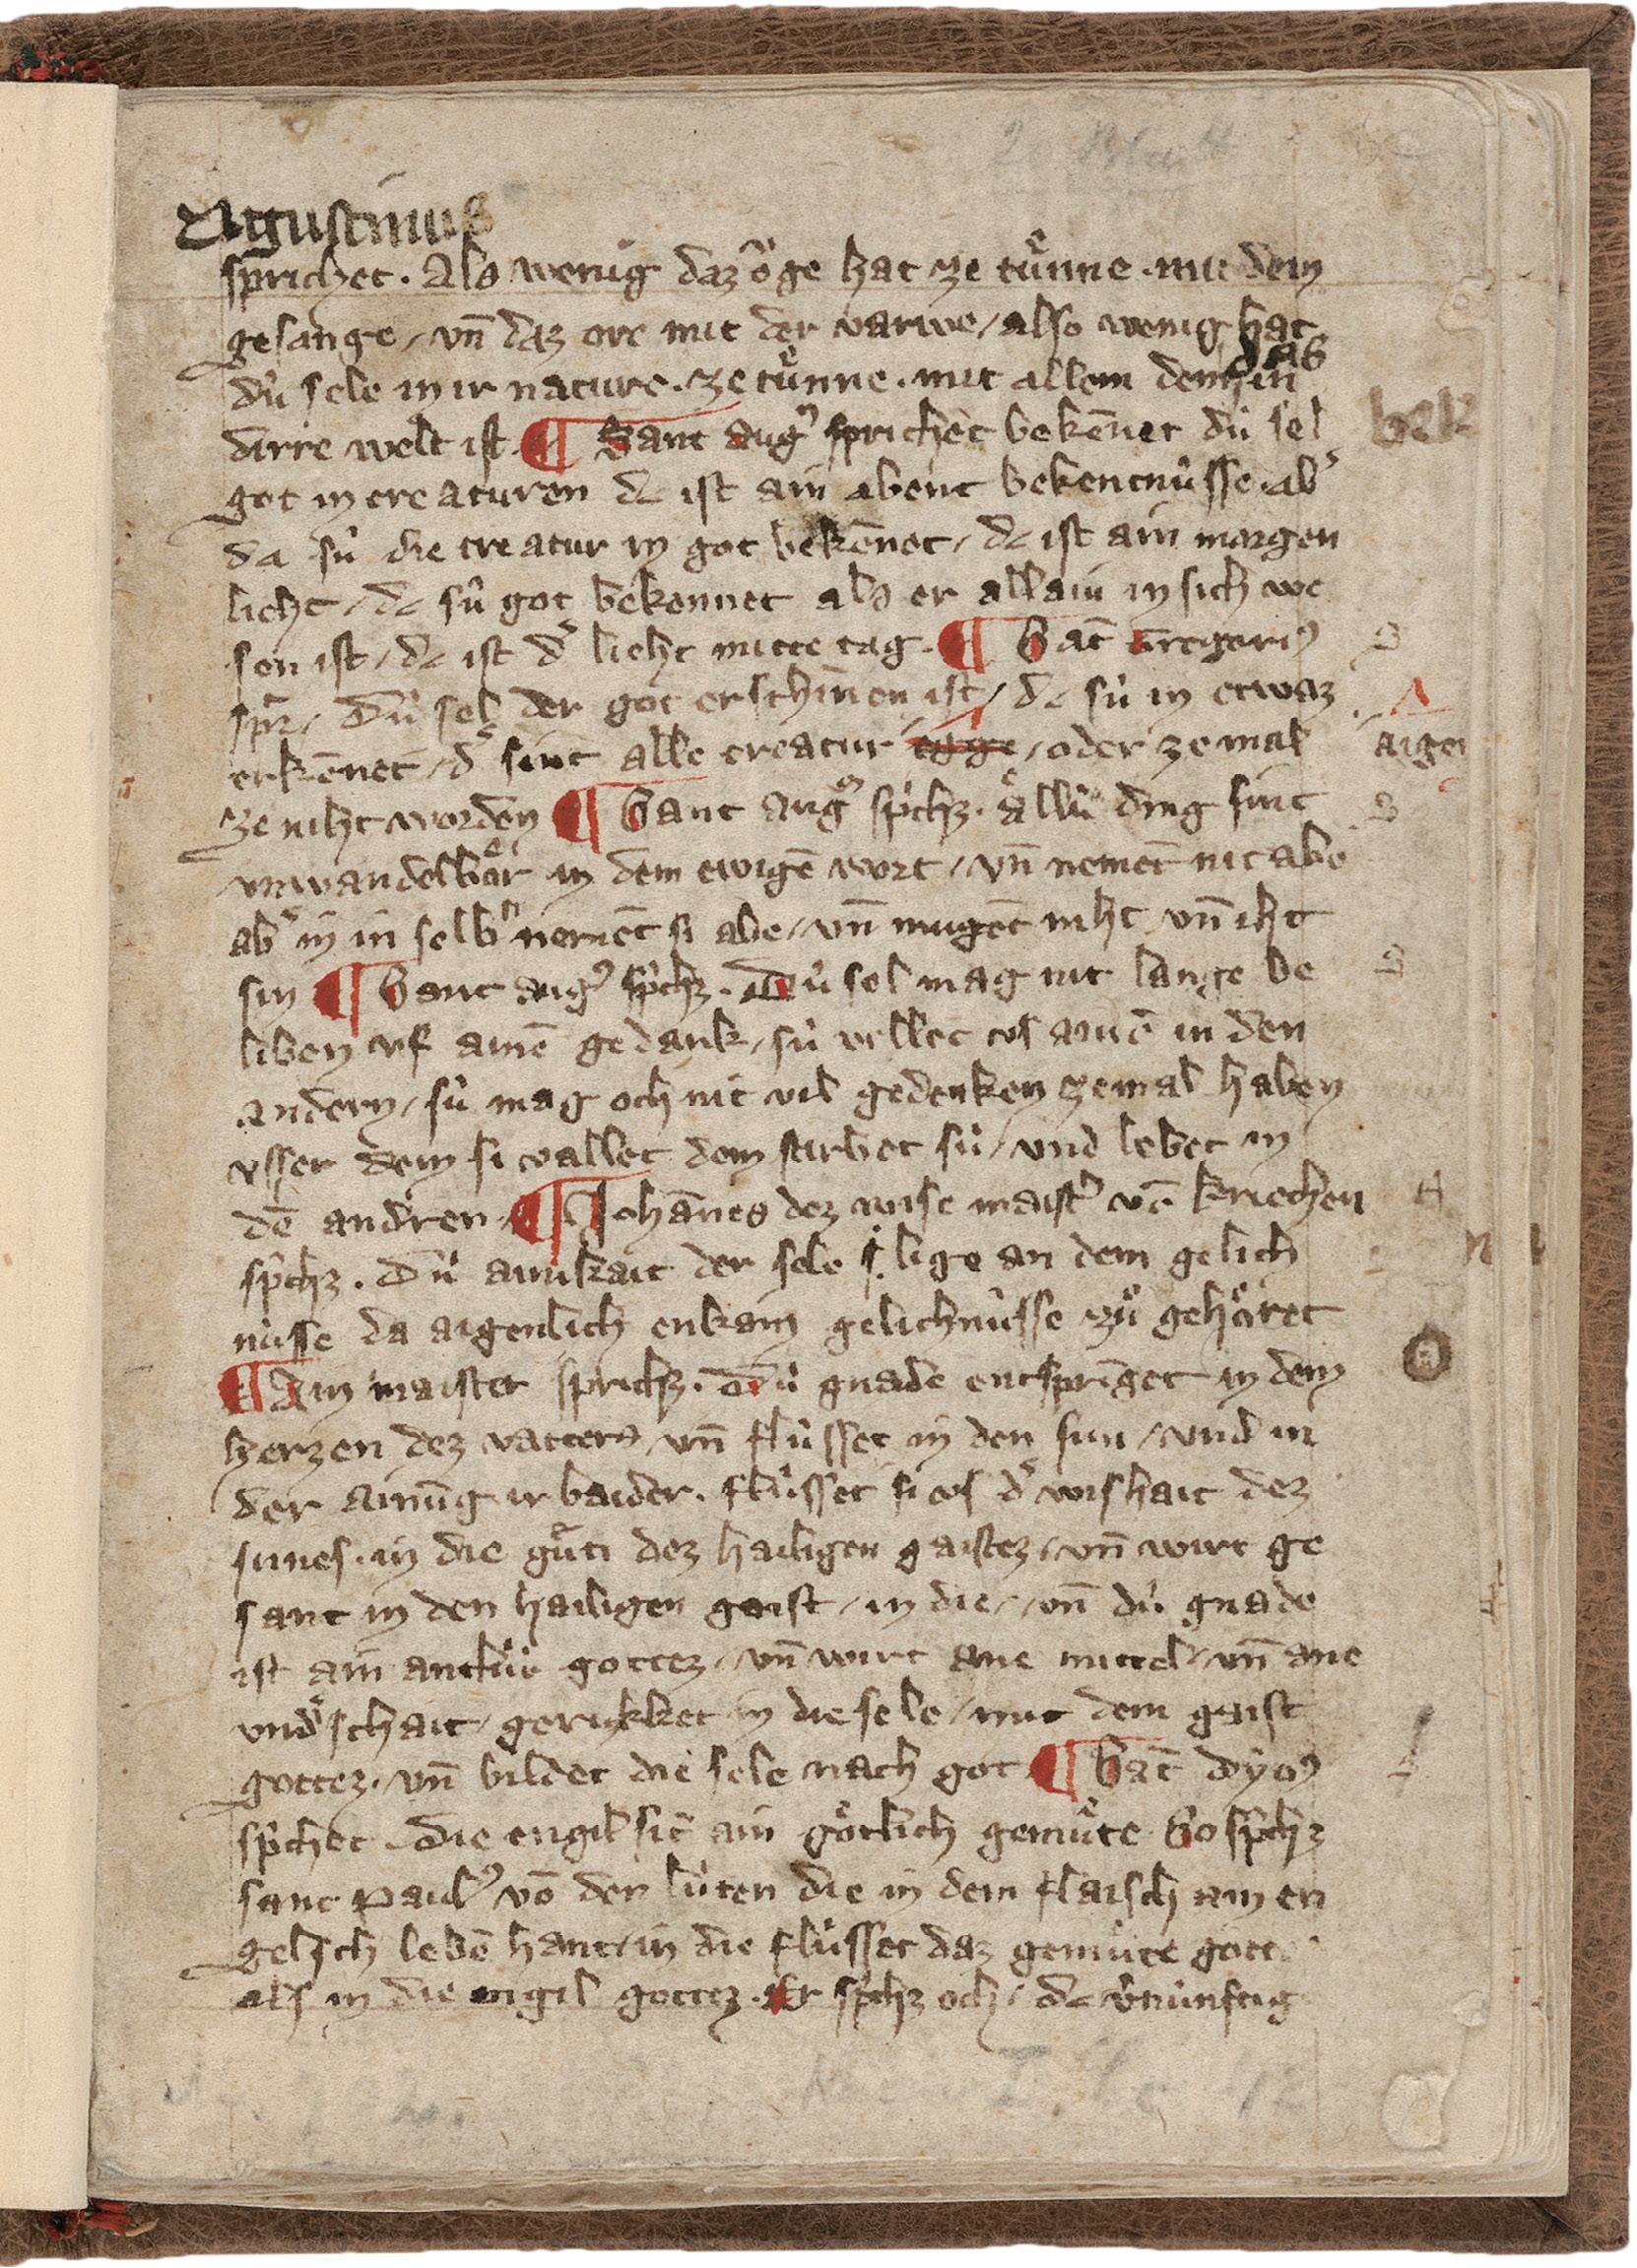 Agustinus
sprichet . Als wenig daz oͮge hat ze tuͤnne . mit dem
gesange / vn̄ daz ore mit der varwe / also wenig hat
dú sele in ir nature . ze tuͤnne . mit allem dem das in
dirre welt ist ¶ Sant aug⁹ sprichet bekēnet dú sel
got in creaturen dc ist ain abent bekentnússe . abʼ
da sú die creatur in got bekēnet / dc ist ain morgen
lieht / dc sú got bekennet als er allain in sich we
sen ist / dc ist dʼ lieht mitte tag . ¶ Sāt Gregori⁹
sprͣ / Dú sel der got erschinen ist / dc sú in etwaz
erkēnet / dʼ sint alle creatur / oder ze mal
aigen
ze niht worden ¶ Sant aug⁹ spͥchz . aͤllú ding sint
vnwandelbaͤr in dem ewigē wort / vn̄ nemēt nit abe
abʼ in in selbn nemēt si abe / vn̄ mugēt niht vn̄ iht
sin ¶ Sant aug⁹ spͥchz . Dú sel mag nit lange be
liben vf ainē gedank / sú vellet vs ainē in den
andern / sú mag och nit vil gedenken zemal haben
vsser dem si vallet dem starbet sú / vnd lebet in
dē andren . ¶ Johānes dez wise maistʼ vō kriechen
spͥchz . Dú ainikait der sele s. lige an dem gelich
nússe da aigenlich enkain gelichnússe zuͦ gehoͤret
¶ Ain maister sprichz . Dú gnade entspringet in dem
herzen dez vatters vn̄ flússet in den sun / vnd in
der ainūg ir baider . flússet si vs dʼ wishait dez
sunes . in die guͤti dez hailigen gaistez / vn̄ wirt ge
sant in den hailigen gaist / in die / vn̄ dú gnade
ist ain antlút gottez / vn̄ wirt ane mittel / vn̄ ane
vndʼschait / gerukket in die sele / mit dem gaist
gottez . vn̄ bildet die sele nach got ¶ Sāt dyo⁹
spͥchet . Die engil sīt ain goͤtlich gemuͤte So spͥchz
sant Paul⁹ vō den lúten die in dem flaisch ain en
gelsch lebē hant / in die flússet daz gemuͤte gottez
als in die engil gottez . Er spͥchz och / dc vʼnúnftig